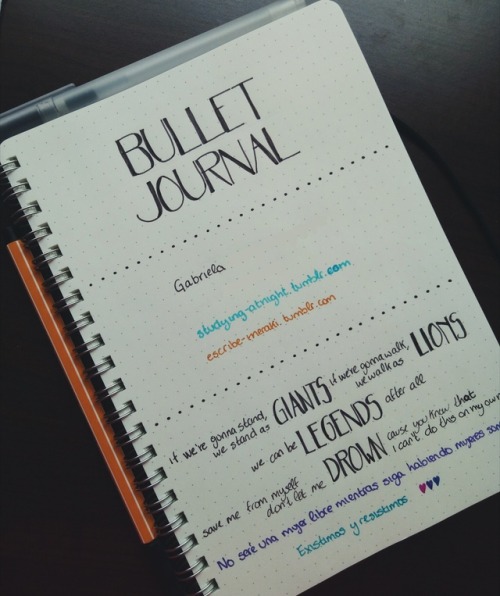 BULLET
JOURNAL
Gabriela
studying-atnight.tumblr.com
escribe-meraki.tumblr.com
if we're gonna stand,
we stand as GIANTS
if we're gonna walk,
we walk as LIONS
we can be LEGENDS after all
save me from myself
don't let me DROWN
cause you know that
i can't do this on my own
No seré una mujer libre mientras siga habiendo mujeres
Existimos y resistimos